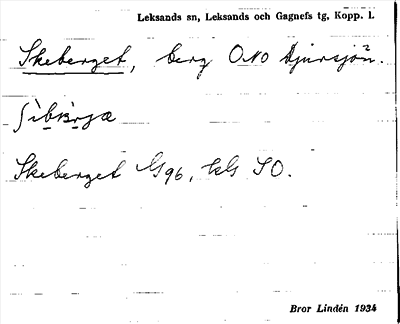 Leksands sn, Leksands och Gagnefs tg, Kopp. l.
Skeberget, berg ONO Djursjön.
Skeberget G96, hG SO.
Bror Lindén 1934